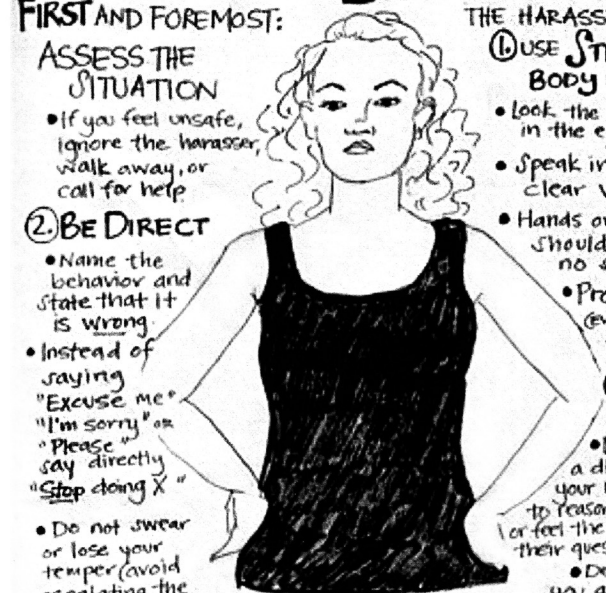 FIRST AND FOREMOST:
ASSESS THE
SITUATION
• If you feel unsafe,
ignore the harasser,
walk away, or
call for help
② BE DIRECT
• Name the
behavior and
state that it
is wrong.
• Instead of
saying
"Excuse me"
"I'm sorry" or
"Please"
say directly
"Stop doing X"
• Do not swear
or lose your
temper (avoid
the
THE HARASS
① USE ST
BODY
• Look the
in the e
• Speak in
clear v
• Hands on
should
no s
• Pro
(ev
a di
your
to reason
or feel the
their ques
• Do
you a